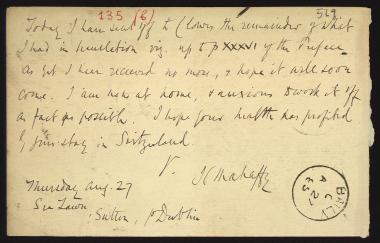 135 (6)
519
Today I have sent off to Clowes the remainder of what
I had in translation viz. up to p XXXVI of the Preface
As yet I have received no more, & hope it will soon
come. I am now at home, & anxious to work it off
as fast as possible. I hope your health has profited
by your stay in Switzerland.
Y.
J P Mahaffy
Thursday Aug. 27
Sea Lawn,
Sutton, Dublin
BAILY
C
AU 27